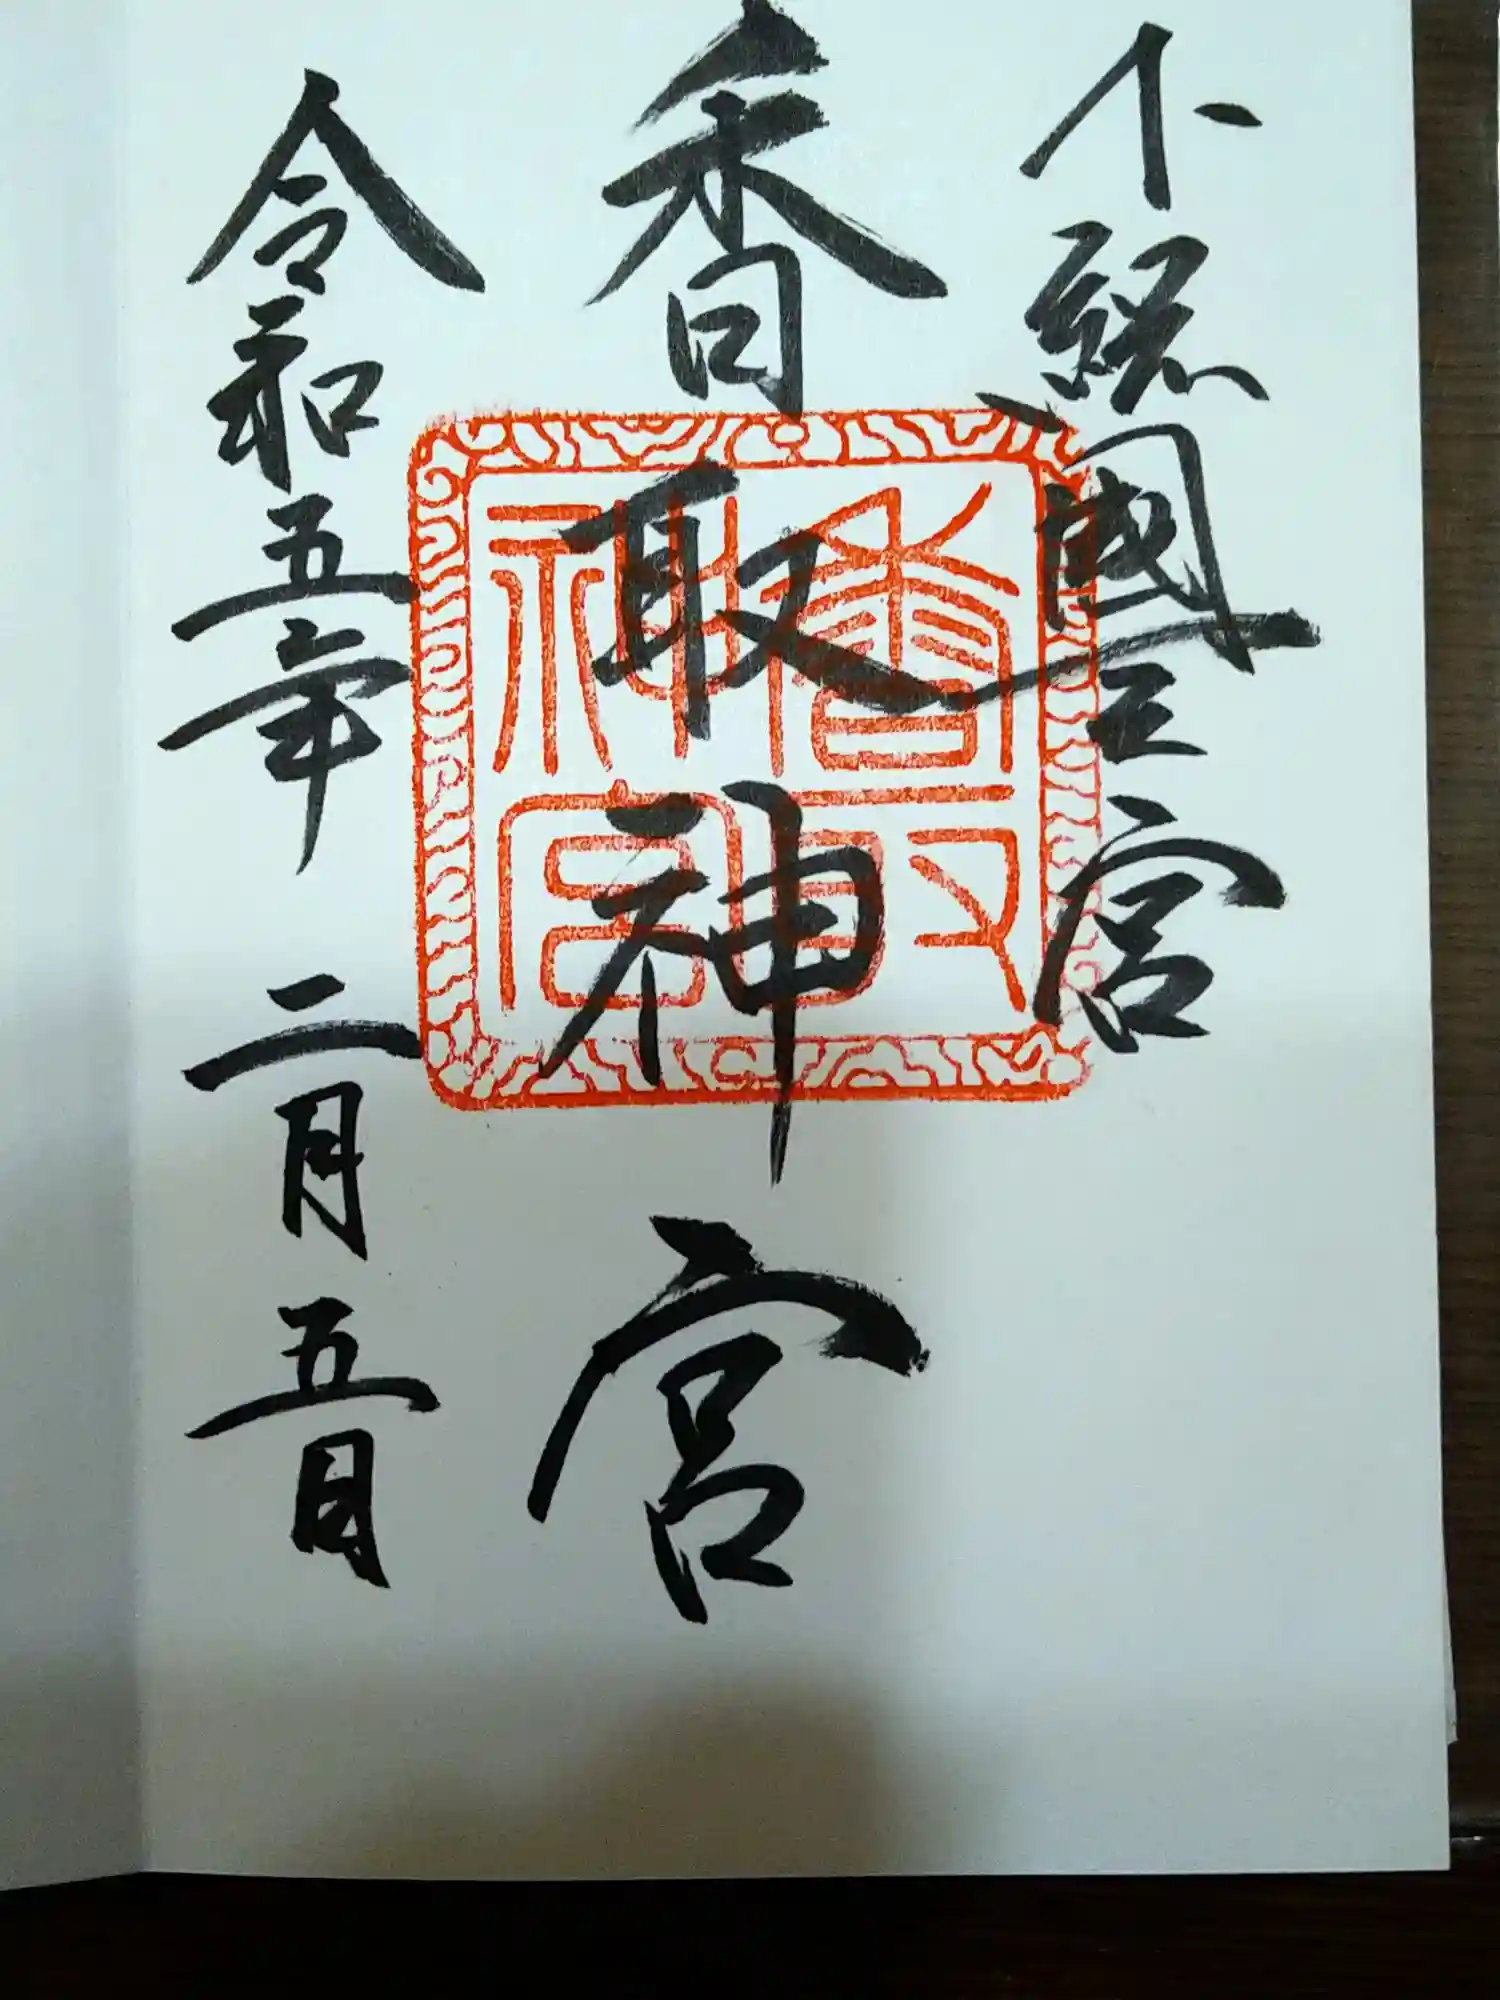 下総國一之宮
香取神宮
令和五年 二月 五日
香取神宮